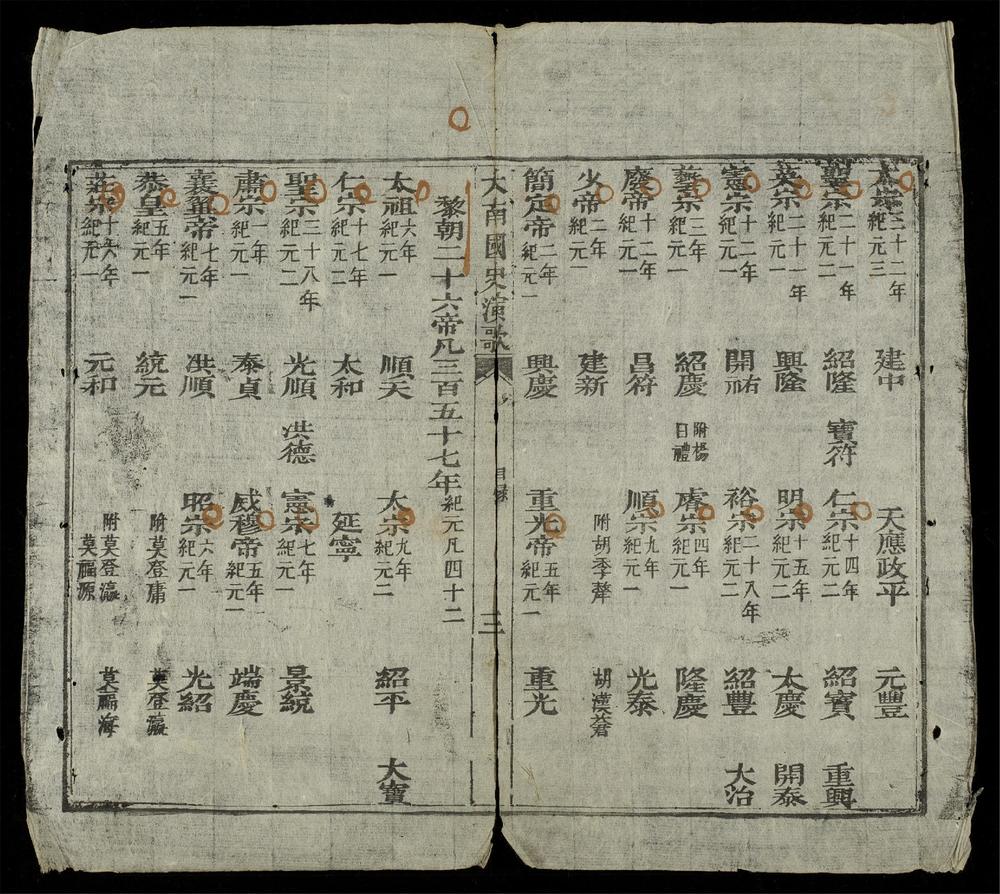 太宗三十二年紀元三 建中 天應政平 元豐
聖宗二十一年紀元二 紹隆 寶符 仁宗十四年紀元二 紹寶 重興
英宗二十一年紀元一 興隆 明宗十五年紀元二 太慶 開泰
憲宗十二年紀元一 開祐 裕宗二十八年紀元二 紹豐 大治
藝宗三年紀元一 紹慶 附楊日禮 睿宗四年紀元一 隆慶
廢帝十二年紀元一 昌符 順宗九年紀元一 光泰
少帝二年紀元一 建新 附胡季犛 胡漢蒼
簡定帝二年紀元一 興慶 重光帝五年紀元一 重光
大南國史演歌 目錄 三
黎朝二十六帝凡三百五十七年紀元凡四十二
太祖六年紀元一 順天 太宗九年紀元二 紹平 大寶
仁宗十七年紀元二 太和 延寧
聖宗三十八年紀元二 光順 洪德 憲宗七年紀元一 景統
肅宗一年紀元一 泰貞 威穆帝五年紀元一 端慶
襄翼帝七年紀元一 洪順 昭宗六年紀元一 光紹
恭皇五年紀元一 統元 附莫登庸 莫登瀛
莊宗十六年紀元一 元和 附莫登瀛 莫福源 莫福海